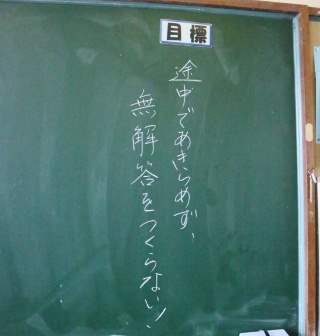 目標
途中であきらめず、
無解答をつくらない！